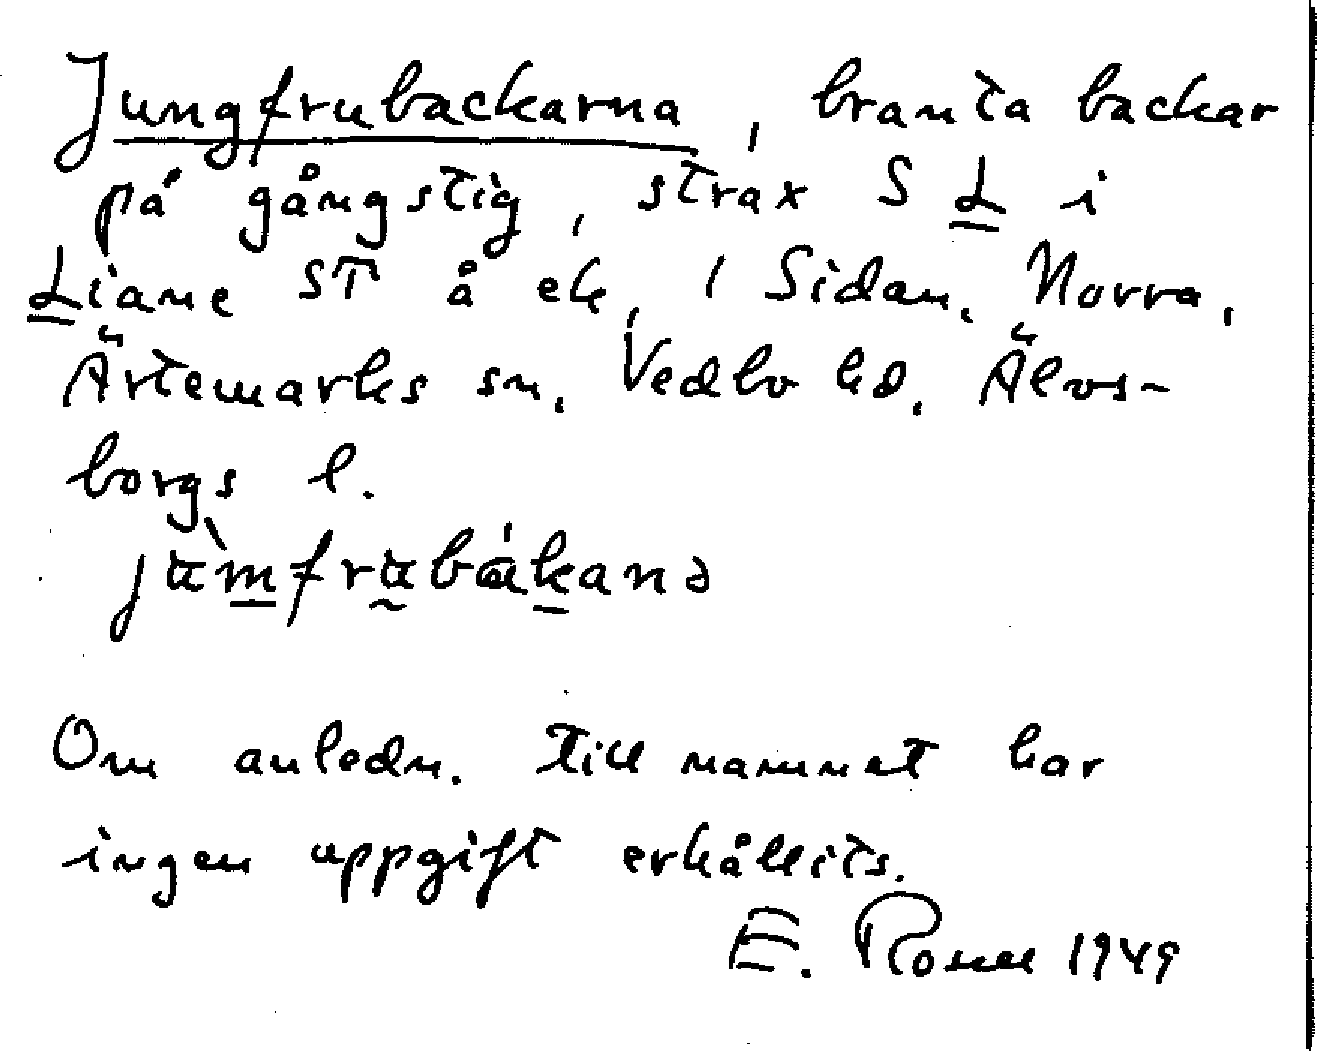 Jungfrubackarna, branta backar
på gångstig, strax S L i
Liane ST å ek, / Sidan, Norra,
Ärtemarks sn, Vedbo hd, Älvs-
borgs l.
Om anledn. till namnet har
ingen uppgift erhållits.
E. 1949